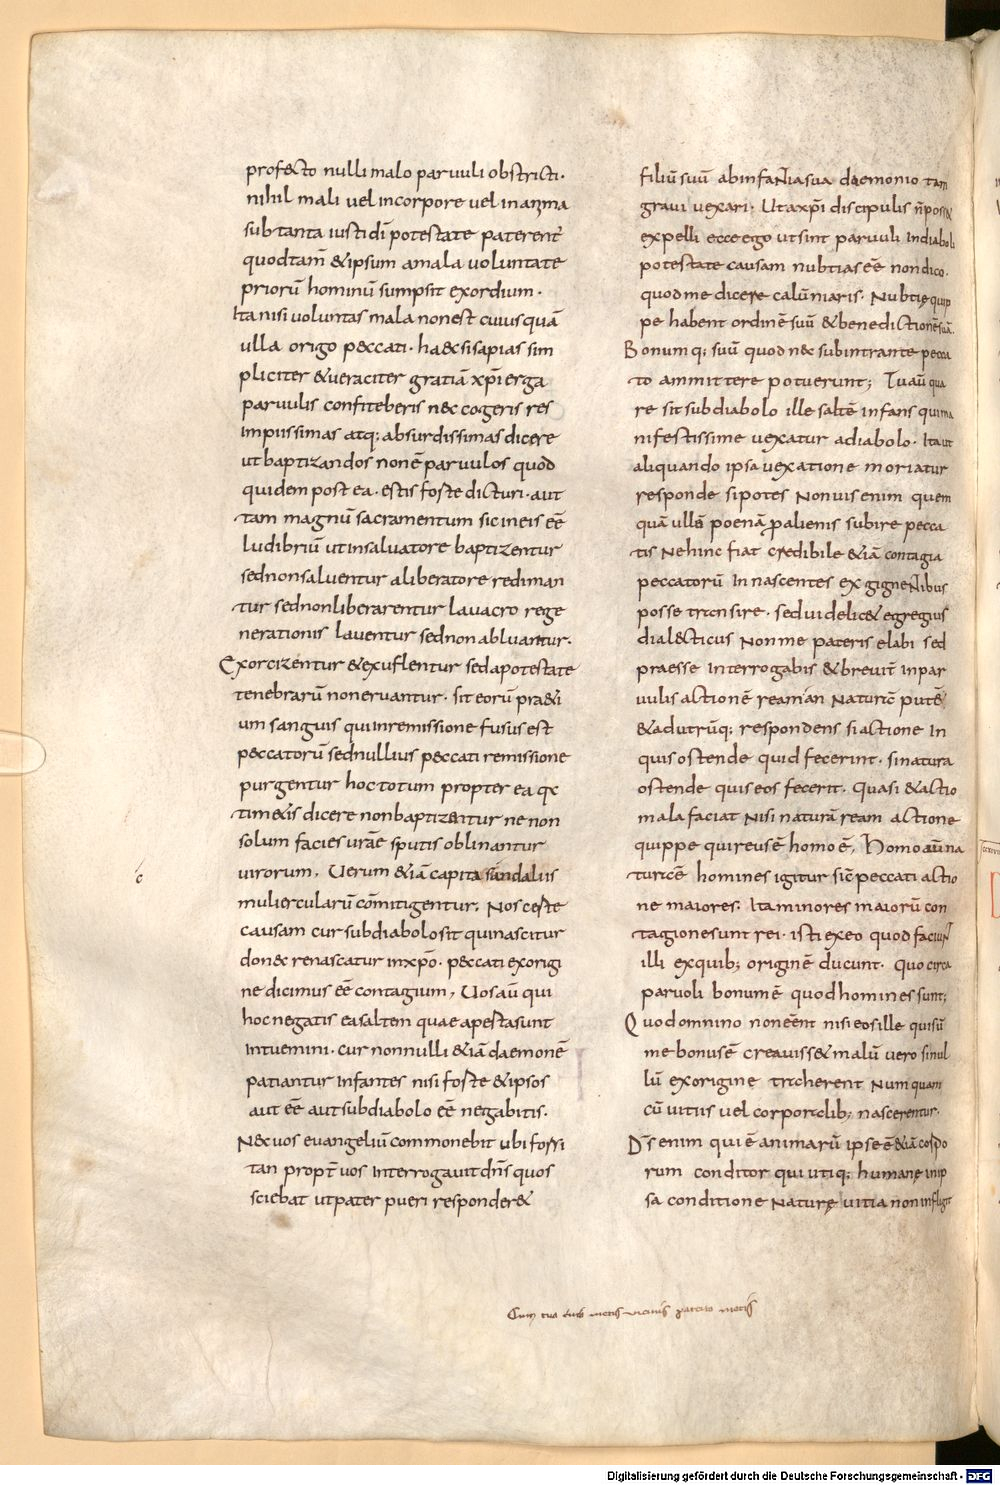 prof&to nulli malo paruuli obstricti·
nihil mali uel incorpore uel in anima
subtanta iusti dī potestate paterent̄
quodtam̄ &ipsum amala uoluntate
priorū hominū sumpsit exordium·
Ita nisi uoluntas mala nonest cuiusquā
ulla origo peccati· haec sisapias sim
pliciter &ueraciter gratiā xp̄i erga
paruulis confiteberis nec cogeris res
impiissimas atq; absurdissimas dicere
ut baptizandos non ē paruulos quod
quidem post ea· estis foste dicturi· aut
tam magnū sacramentum sic in eis eē
ludibriū ut insaluatore baptizentur
sed non saluentur a liberatore rediman
tur sed non liberarentur lauacro rege
nerationis lauentur sed non abluantur·
Exorcizentur &exuflentur sed apotestate
tenebrarū non eruantur· sit eorū pr&i
um sanguis qui in remissione fusus est
peccatorū sed nullius peccati remissione
purgentur hoc totum propter ea qc
tim&is dicere non baptizentur ne non
solum facies urāe sputis oblinantur
uirorum, Uerum &iā capita sandaliis
muliercularū cōmitigentur; Nos ceste
causam cur subdiabolo sit qui nascitur
donec renascatur in xp̄o· peccati exorigi
ne dicimus eē contagium, Uos aū qui
hoc negatis ea saltem quae apestasunt
intuemini· cur nonnulli &iā daemonē
patiantur infantes nisi foste &ipsos
aut eē aut subdiabolo eē negabitis·
Nec uos euangeliū commonebit ubi forsi
tan propt̄ uos interrogauit dn̄s quos
sciebat ut pater pueri responder&
filiū suū ab infantia sua daemonio tam
graui uexari· Ut axp̄i discipulis n̄ poss&
expelli ecce ego ut sint paruuli indiaboli
potestate causam nubtias eē non dico·
quod me dicere calūniaris· Nubtię quip
pe habent ordinē suū &benedictionē suā
Bonumq; suū quod nec subintrante pecca
to ammittere potuerunt; Tu aū qua
re sit subdiabolo ille saltē infans qui ma
nifestissime uexatur adiabolo· Ita ut
aliquando ipsa uexatione moriatur
responde si potes Non uis enim quem
quā ullā poenā p̱ alienis subire pecca
tis Ne hinc fiat credibile &iā contagia
peccatorū in nascentes ex gignentibus
posse transire· sed uidelic& egregius
dialecticus Non me pateris elabi sed
praesse interrogabis &breuit̄ in par
uulis actionē ream an Naturā put&
&adutrūq; respondens si actione in
quis ostende quid fecerint· si natura
ostende quis eos fecerit· Quasi &actio
mala faciat Nisi naturā ream actione
quippe qui reus ē homo ē, Homo aū na
tura ē homines igitur sic̄ peccati actio
ne maiores· Ita minores maiorū con
tagione sunt rei· isti ex eo quod faciunt
illi ex quib; originē ducunt· Quo circa
paruoli bonum ē quod homines sunt;
Quod omnino non eēnt nisi eos ille qui sū
me bonus ē creauiss& malū uero si nul
lū ex origine traherent Num quam
cū uitiis uel corporalib; nascerentur·
Ds̄ enim qui ē animarū ipse ē &iā corpo
rum conditor qui utiq; humanę in ip
sa conditione Naturę uitia non infligit